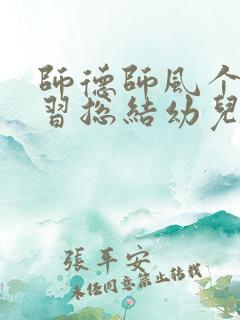 師德師風个
習总結幼兒
張平安
未经同意禁止转载